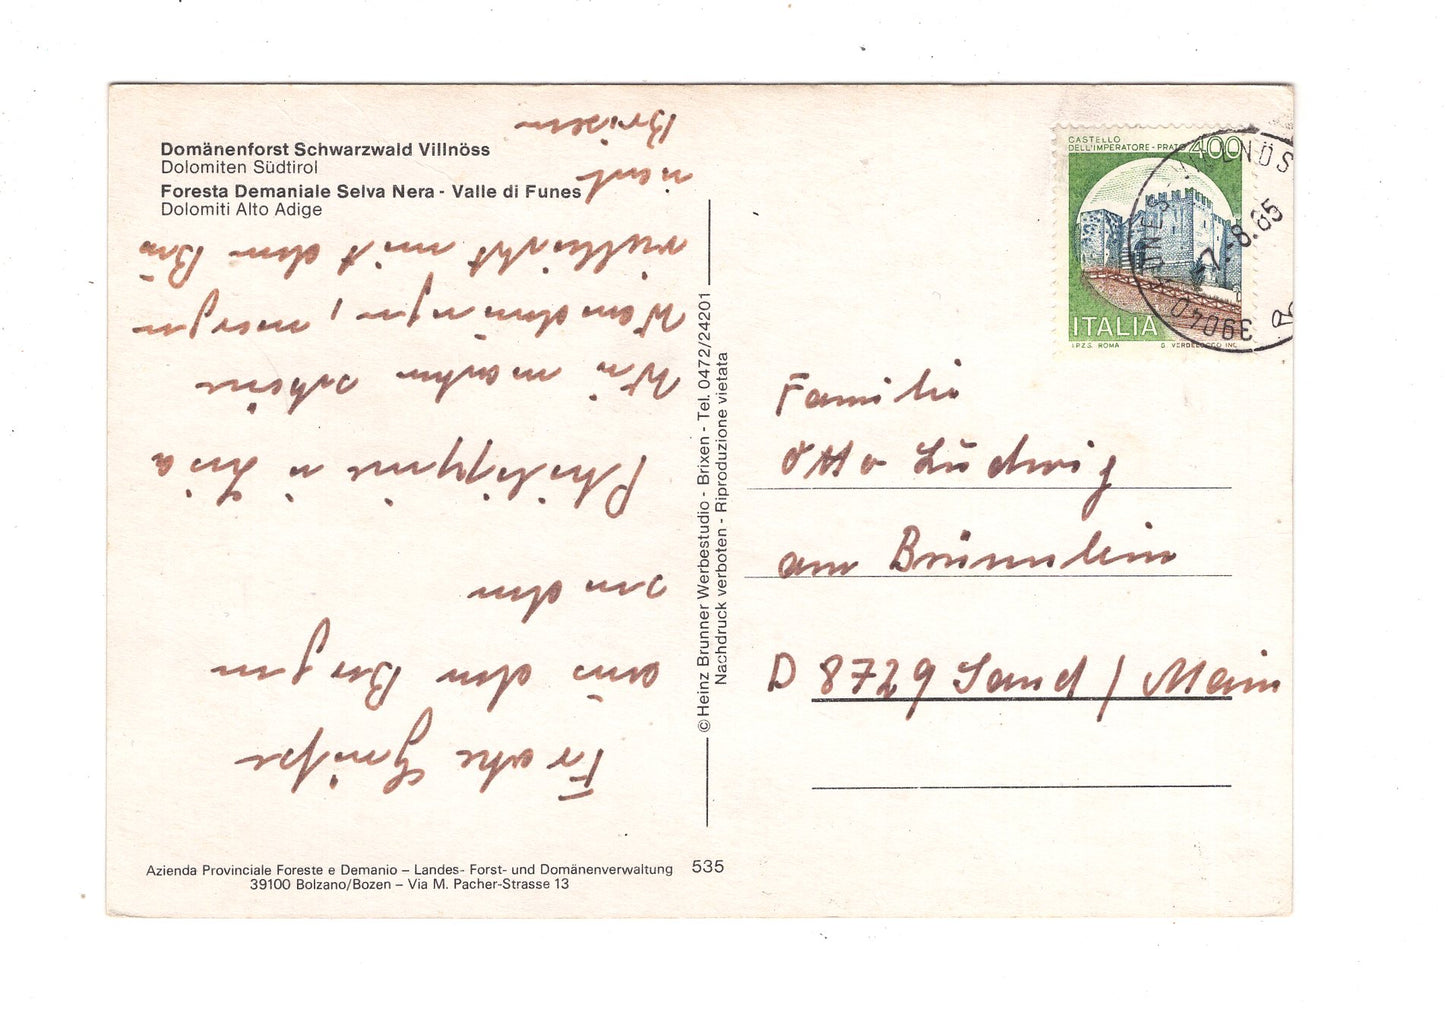 Domänenforst Schwarzwald Villnöss
Dolomiten Südtirol
Foresta Demaniale Selva Nera - Valle di Funes
Dolomiti Alto Adige
Frohe Grüße
aus den Bergen
von den
Wir machen schöne
Wanderungen, morgen
vielleicht mit dem
nach
Brixen
© Heinz Brunner Werbestudio - Brixen - Tel. 0472/24201
Nachdruck verboten - Riproduzione vietata
CASTELLO
DELL'IMPERATORE - PRATO 400
ITALIA
I.P.Z.S. ROMA G. VERDELOCCO INC.
39040
-7.-8.85
Familie
Otto Ludwig
am Brünnlein
D 8729 Sand / Main
Azienda Provinciale Foreste e Demanio – Landes- Forst- und Domänenverwaltung
39100 Bolzano/Bozen – Via M. Pacher-Strasse 13
535